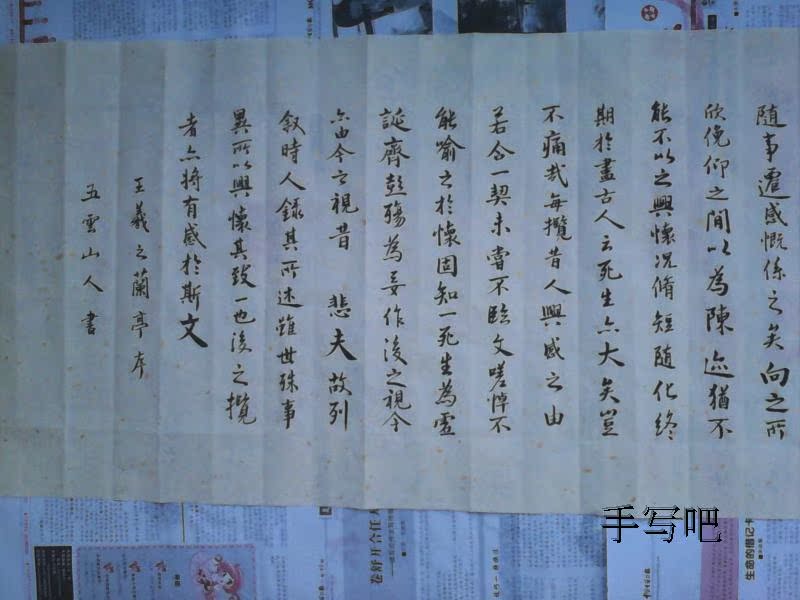 隨事遷感慨係之矣向之所
欣俛仰之間以為陳迹猶不
能不以之興懷況脩短隨化終
期於盡古人云死生亦大矣豈
不痛哉每攬昔人興感之由
若合一契未嘗不臨文嗟悼不
能喻之於懷固知一死生為虛
誕齊彭殤為妄作後之視今
亦由今之視昔 悲夫故列
敘時人錄其所述雖世殊事
異所以興懷其致一也後之攬
者亦將有感於斯文
王羲之蘭亭本
五雲山人書
手写吧
卷舒开合任
生命的借记卡